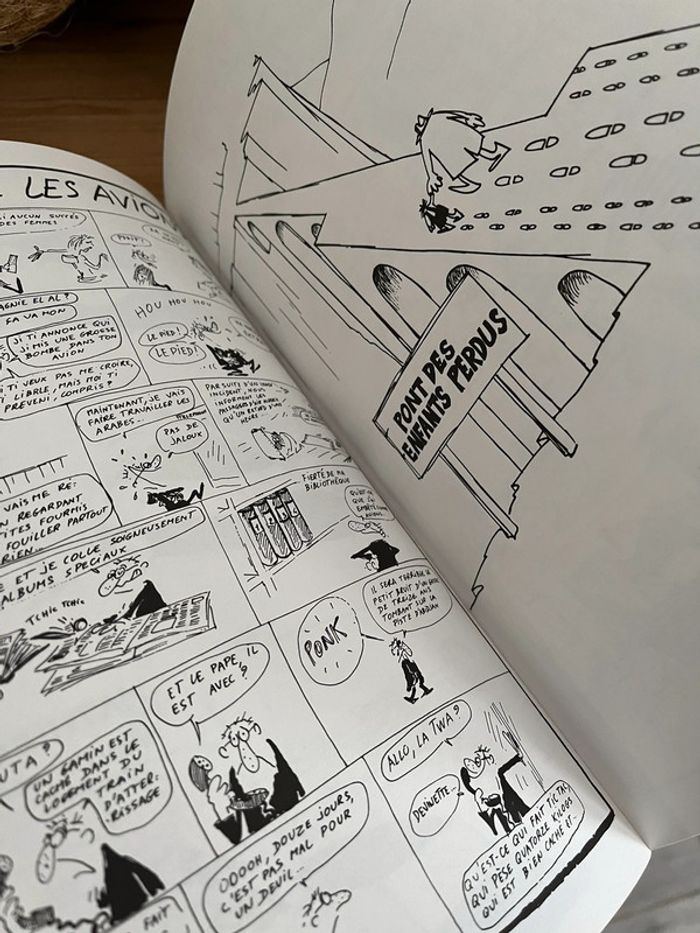 LES AVION
AUCUN SUCCÈS
DES FEMMES
PFFIF!
AGNIE EL AL?
ÇA VA MON
JI TI ANNONCE QUI
JI MIS UNE GROSSE
BOMBE DANS TON
AVION
TI VEUX PAS ME CROIRE,
T LIBRE, MAIS MOI TI
PREVENI, COMPRIS?
HOU HOU HOU
LE PIED!
LE PIED!
MAINTENANT, JE VAIS
FAIRE TRAVAILLER LES
ARABES...
PAS DE
JALOUX
PAR SUITE D'UN
INCIDENT, NOUS
INFORMONS LES
PASSAGERS D'AIR
QU'UN RETARD D'UNE
HEURE
VAIS ME RE-
N REGARDANT
ITES FOURMIS
FOUILLER PARTOUT
RIEN...
FIERTÉ DE MA
BIBLIOTHÈQUE
QUE J'AI
E ET JE COLLE SOIGNEUSEMENT
ALBUMS SPÉCIAUX
TCHIC TCHIC
PONK
IL SERA TERRIBLE LE
PETIT BRUIT D'UN GOSSE
DE TREIZE ANS
TOMBANT SUR LA
PISTE D'ABIDJAN
ET LE PAPE, IL
EST AVEC?
UTA?
UN GAMIN EST
CACHÉ DANS LE
LOGEMENT DU
TRAIN
D'ATTER-
RISSAGE
ALLO, LA TWA?
DEVINETTE...
QU'EST-CE QUI FAIT TIC TAC,
QUI PÈSE QUATORZE KILOGS
QUI EST BIEN CACHÉ ET...
OOOOH, DOUZE JOURS,
C'EST PAS MAL POUR
UN DEUIL...
FAIT
PONT DES
ENFANTS PERDUS